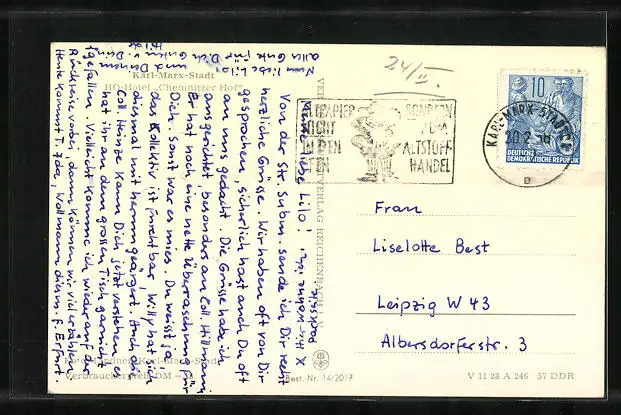 Karl-Marx-Stadt
HO-Hotel „Chemnitzer Hof"
24/II.
ALTPAPIER
NICHT
IN DEN
OFEN
SONDERN
ZUM
ALTSTOFF-
HANDEL
KARL-MARX-STADT
20.2.
10
DEUTSCHE
DEMOKRATISCHE REPUBLIK
Frau
Liselotte Best
Leipzig W 43
Albersdorferstr. 3
Meine liebe Lilo!
Von der Str. Subm. sende ich Dir recht
herzliche Grüsse. Wir haben oft von Dir
gesprochen, sicherlich hast auch Du oft
an uns gedacht. Die Grüsse habe ich
ausgerichtet, besonders an Coll. Hillmann
Er hat noch eine nette Überraschung für
Dich. Sonst war es mies. Du weisst ja,
das Kollektiv ist furchtbar, Willy hat sich
diesmal mit herumgeärgert. Auch die
Coll. Heinze kann Dich jetzt verstehen, es
hat ihr an dem grossen Tisch gar nicht
gefallen. Vielleicht komme ich wieder auf der
Rückreise vorbei, dann können wir viel erzählen.
Heute kommt T. Ida, Wollmann diesm. f. Erfurt.
Nun liebe Lilo,
alles Gute für Dich
und Deinem
VERLAG REICHENBACH
Karl-Marx-Stadt
Verbraucherpreis DM
Best. Nr. 14/2017
V 11 28 A 246 57 DDR